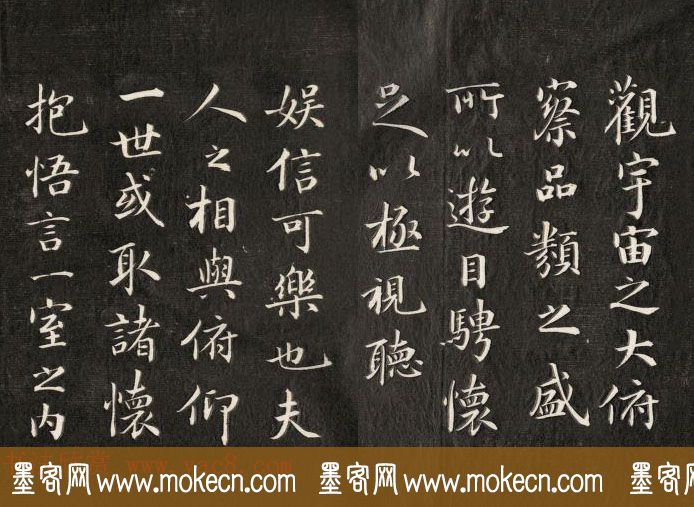 觀宇宙之大俯
察品類之盛
所以遊目騁懷
足以極視聽
娱信可樂也夫
人之相與俯仰
一世或取諸懷
抱悟言一室之内
墨客网 www.mokecn.com 墨客网 www.mokecn.com 墨客网